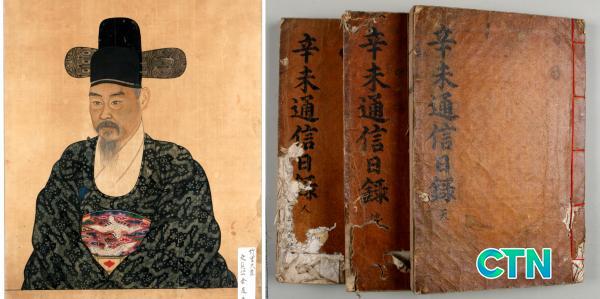 辛未通信日錄
人
辛未通信日錄
地
辛未通信日錄
天
CTN